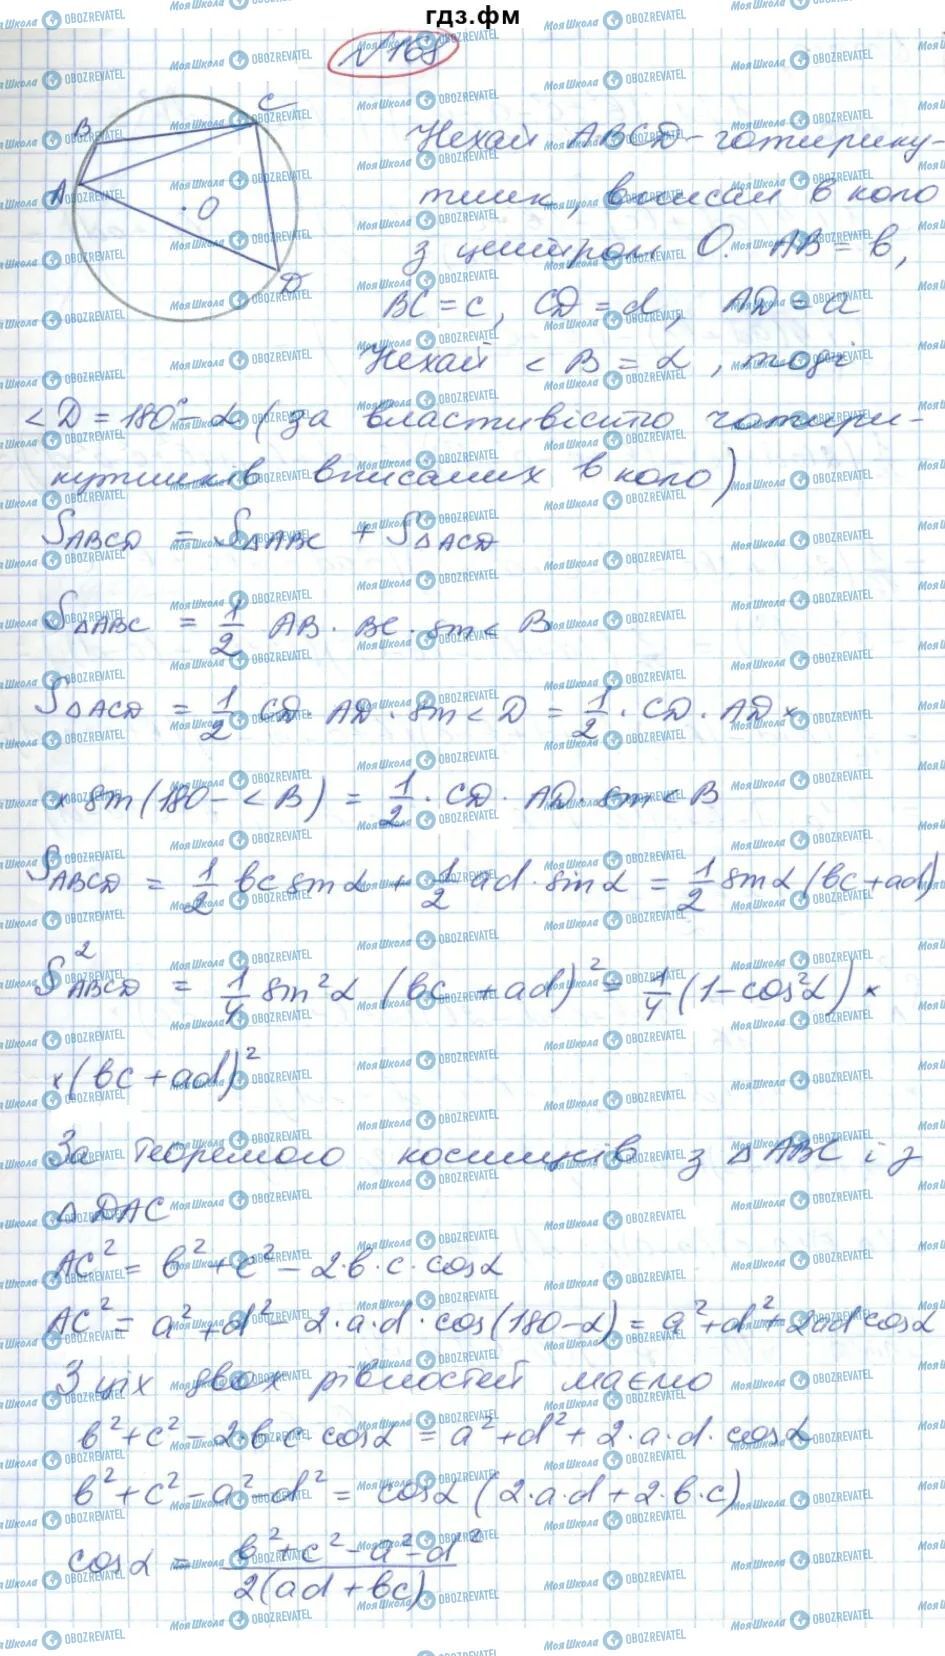 гдз.фм
№168
B C
A O
D
Нехай ABCD - чотирику-
тник, вписан в коло
з центром O. AB = b,
BC = c, CD = d, AD = a
Нехай < B = α, тоді
< D = 180° - α (за властивістю чотири-
кутників вписаних в коло)
S_ABCD = S_ΔABC + S_ΔACD
S_ΔABC = 1/2 AB · BC · sin < B
S_ΔACD = 1/2 CD · AD · sin < D = 1/2 · CD · AD ×
× sin(180 - < B) = 1/2 · CD · AD · sin < B
S_ABCD = 1/2 bc sin α + 1/2 ad · sin α = 1/2 sin α (bc + ad)
S²_ABCD = 1/4 sin²α (bc + ad)² = 1/4 (1 - cos²α) ×
× (bc + ad)²
За теоремою косинусів з ΔABC і з
Δ DAC
AC² = b² + c² - 2·b·c·cos α
AC² = a² + d² - 2·a·d·cos(180-α) = a² + d² + 2ad cos α
З цих двох рівностей маємо
b² + c² - 2·b c cos α = a² + d² + 2·a·d·cos α
b² + c² - a² - d² = cos α (2·a·d + 2·b·c)
cos α = (b² + c² - a² - d²) / 2(ad + bc)